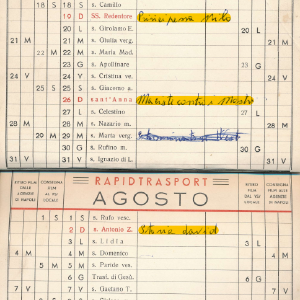 18 S 18 S s. Camillo
19 D SS. Redentore Principessa Nilo
20 L s. Girolamo E. 20 L
21 M 21 M s. Giulia verg.
22 M 22 M s. Maria Mad.
23 G s. Apollinare 23 G
24 V 24 V s. Cristina ve.
25 S s. Giacomo a.
26 D sant'Anna Maciste contro i Mostri
27 L s. Celestino 27 L
28 M 28 M s. Nazario m.
29 M 29 M s. Marta verg.
30 G s. Rufino m. 30 G
31 V 31 V s. Ignazio di L.
RITIRO FILM DALLE AGENZIE DI NAPOLI
CONSEGNA FILM AL VS/ LOCALE
RAPIDTRASPORT
AGOSTO
RITIRO FILM DAL VS/ LOCALE
CONSEGNA FILM ALLE AGENZIE DI NAPOLI
1 S 1 S s. Rufo vesc.
2 D s. Antonio Z. Storia david
3 L s. Lidia 3 L
4 M 4 M s. Domenico
5 M 5 M s. Paride ves.
6 G Trasf. di Gesù 6 G
7 V 7 V s. Gaetano T.